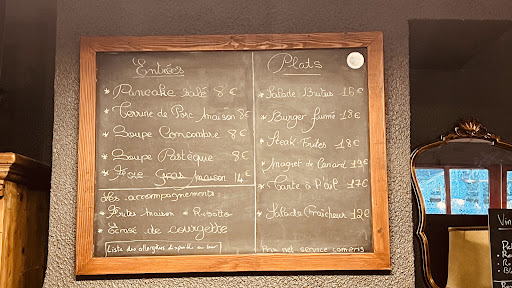 Entrées
* Pancake salé 8€
* Terrine de Porc Maison 8€
* Soupe Concombre 8€
* Soupe Pastèque 8€
* Foie Gras Maison 14€
Les accompagnements
* Frites Maison * Risotto
* Ecrasé de courgette
Liste des allergènes disponible au bar
Plats
* Salade Brutus 16€
* Burger fumé 18€
* Steak Frites 18€
* Magret de Canard 19€
* Tarte à l'ail 17€
* Salade Fraîcheur 12€
Prix net service compris
Vin